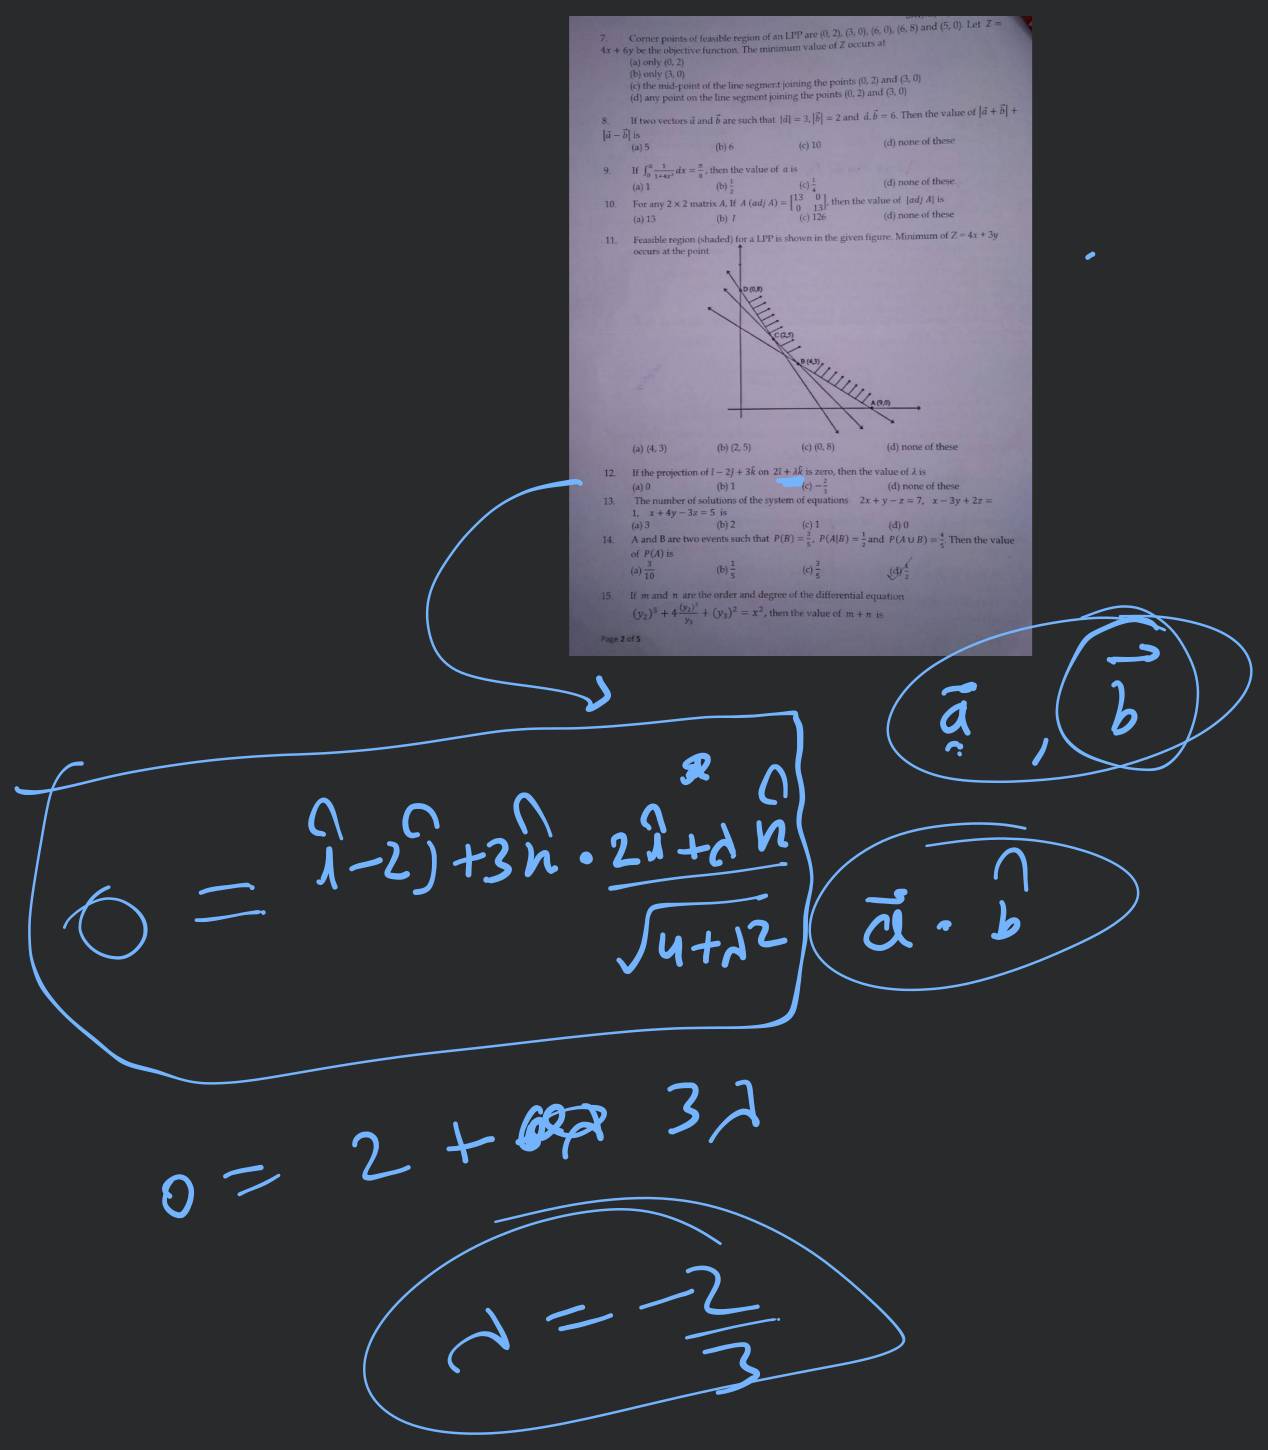 7. Corner points of feasible region of an LPP are (0, 2), (3, 0), (6, 0), (6, 8) and (5, 0). Let Z =
4x + 6y be the objective function. The minimum value of Z occurs at
(a) only (0, 2)
(b) only (3, 0)
(c) the mid-point of the line segment joining the points (0, 2) and (3, 0)
(d) any point on the line segment joining the points (0, 2) and (3, 0)
8. If two vectors a⃗ and b⃗ are such that |a⃗| = 3, |b⃗| = 2 and a⃗. b⃗ = 6. Then the value of |a⃗ + b⃗| +
|a⃗ − b⃗| is
(a) 5 (b) 6 (c) 10 (d) none of these
9. If ∫₀ᵃ 1/(1+4x²) dx = π/8, then the value of a is
(a) 1 (b) 1/2 (c) 1/4 (d) none of these.
10. For any 2 × 2 matrix A, If A (adj A) = [13 0; 0 13], then the value of |adj A| is
(a) 13 (b) 1 (c) 126 (d) none of these
11. Feasible region (shaded) for a LPP is shown in the given figure. Minimum of Z = 4x + 3y
occurs at the point
D (0,8)
C (2,5)
B (4,3)
A (9,0)
(a) (4, 3) (b) (2, 5) (c) (0, 8) (d) none of these
12. If the projection of î − 2ĵ + 3k̂ on 2î + λk̂ is zero, then the value of λ is
(a) 0 (b) 1 (c) −2/3 (d) none of these
13. The number of solutions of the system of equations 2x + y − z = 7, x − 3y + 2z =
1, x + 4y − 3z = 5 is
(a) 3 (b) 2 (c) 1 (d) 0
14. A and B are two events such that P(B) = 3/5, P(A|B) = 1/2 and P(A ∪ B) = 4/5. Then the value
of P(A) is
(a) 3/10 (b) 1/5 (c) 3/5 (d) 1/2
15. If m and n are the order and degree of the differential equation
(y₂)⁵ + 4 (y₂)³/y₃ + (y₃)² = x², then the value of m + n is
Page 2 of 5
a⃗ , b⃗
0 = î − 2ĵ + 3k̂ · 2î + λk̂ / √4+λ²
a⃗ · b̂
0 = 2 + 3λ
λ = −2/3